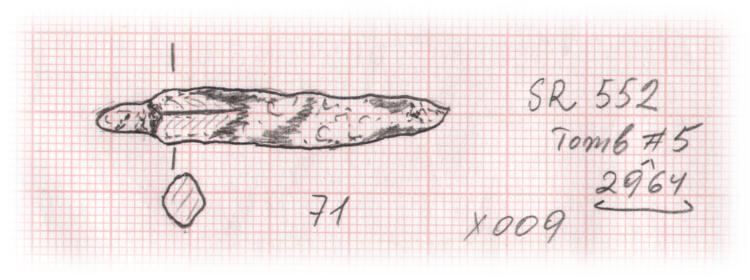 SR 552
Tomb #5
2964
71
X009